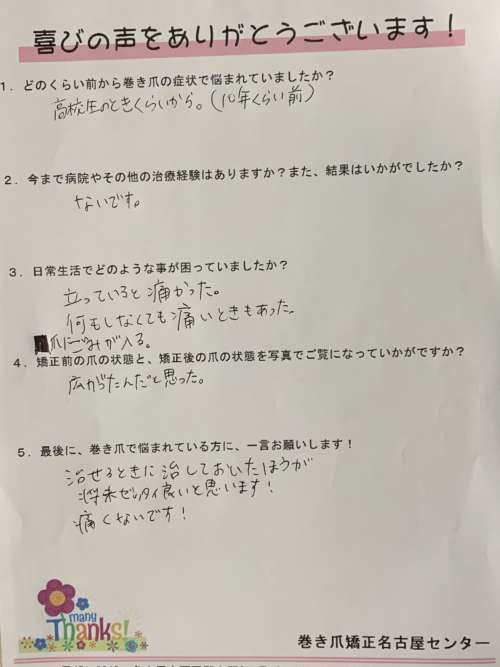 喜びの声をありがとうございます！
1．どのくらい前から巻き爪の症状で悩まれていましたか？
高校生のときくらいから。（10年くらい前）
2．今まで病院やその他の治療経験はありますか？また、結果はいかがでしたか？
ないです。
3．日常生活でどのような事が困っていましたか？
立っていると痛かった。
何もしなくても痛いときもあった。
爪にごみが入る。
4．矯正前の爪の状態と、矯正後の爪の状態を写真でご覧になっていかがですか？
広がったんだと思った。
5．最後に、巻き爪で悩まれている方に、一言お願いします！
治せるときに治しておいたほうが
将来ゼッタイ良いと思います！
痛くないです！
many
Thanks!
巻き爪矯正名古屋センター